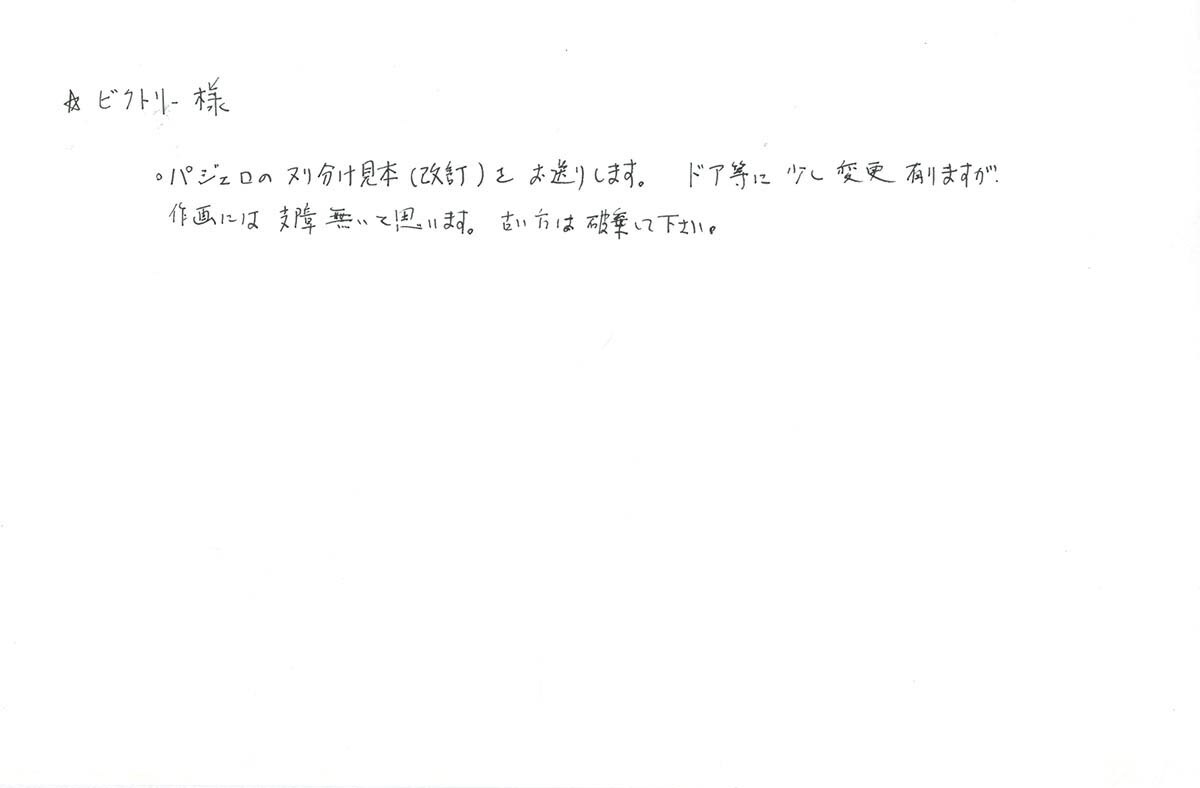 ☆ ビクトリー様
。パジェロの ヌリ分け見本(改訂)を お送りします。 ドア等に 少し 変更 有りますが
作画には 支障 無いと思います。 古い方は 破棄して下さい。